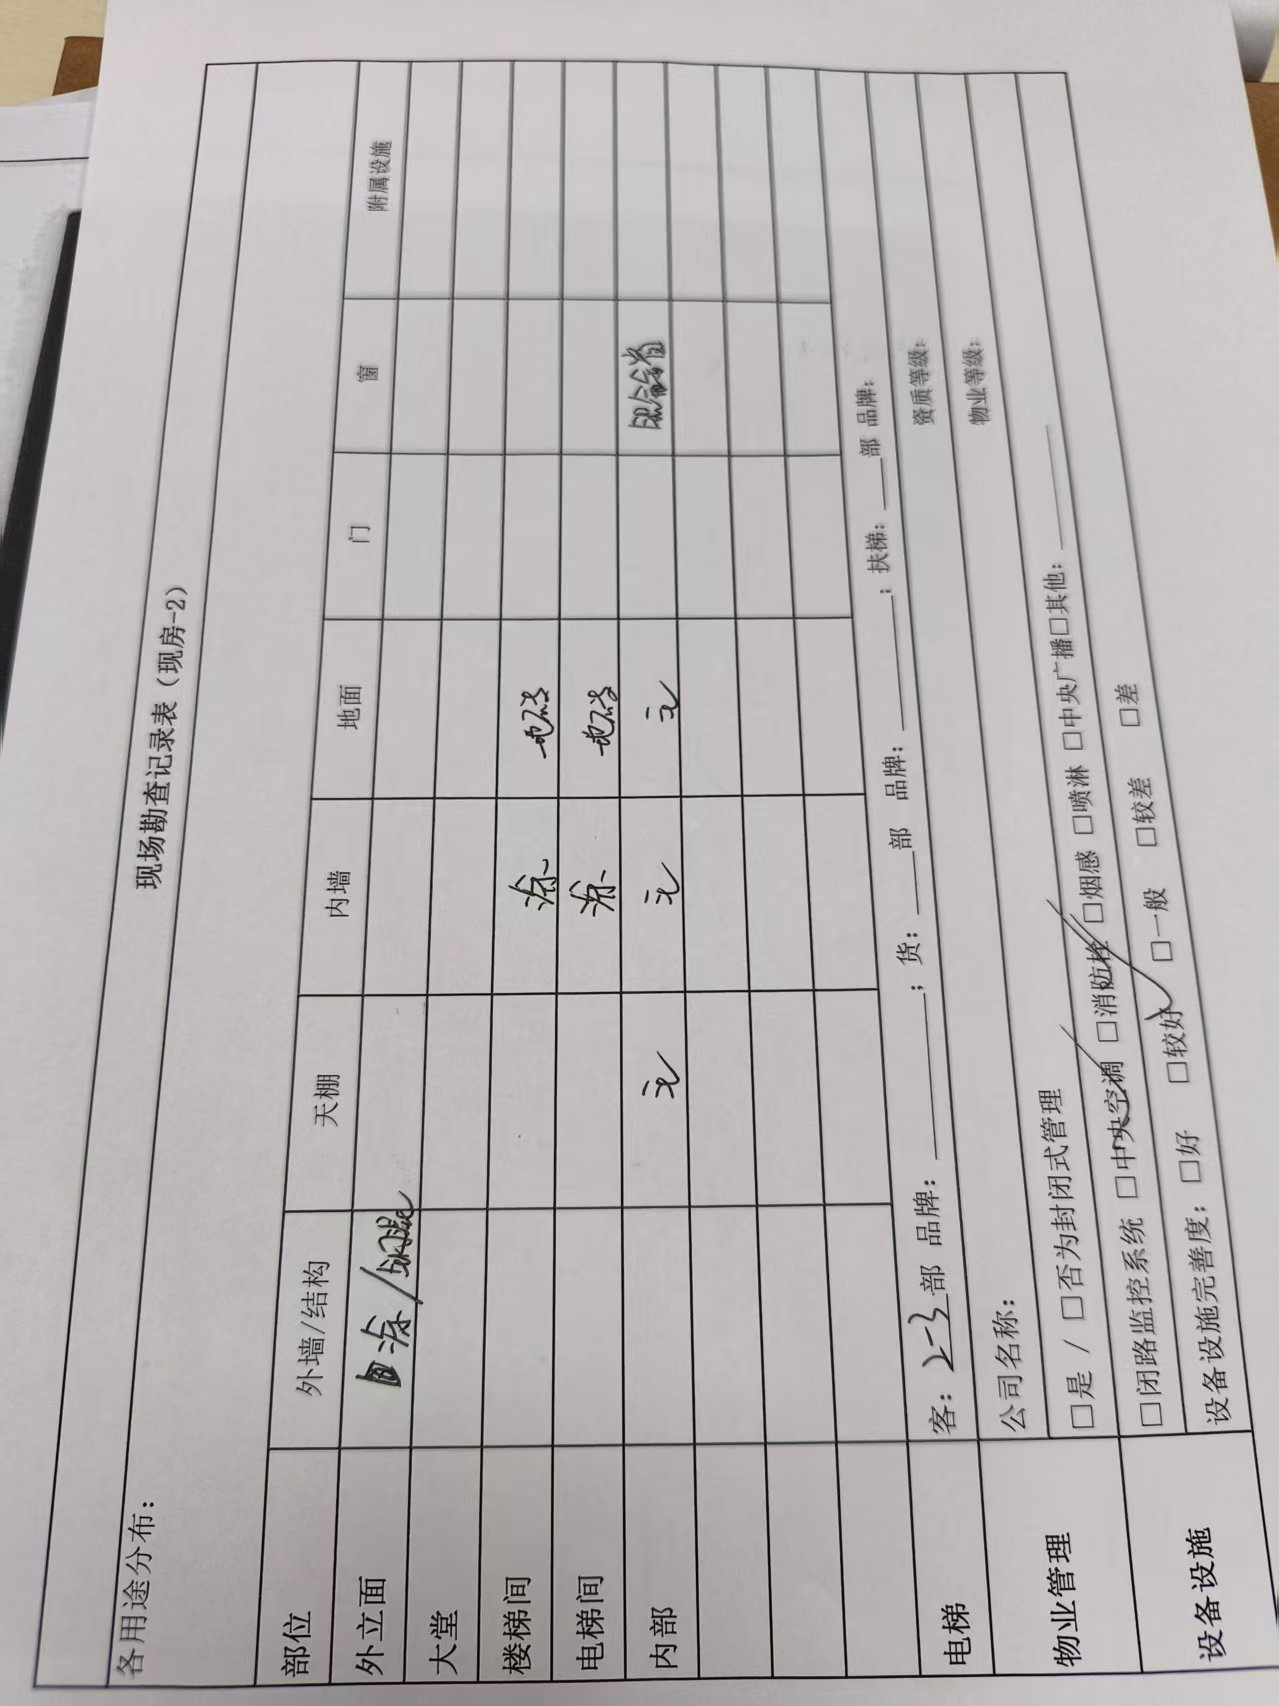 现场勘查记录表（现房-2）
各用途分布：
部位 外墙/结构 天棚 内墙 地面 门 窗 附属设施
外立面 涂/
大堂
楼梯间 涂 地砖
电梯间 涂 地砖
内部 无 无 无 铝合
电梯 客：2-3部 品牌：______；货：___部 品牌：______；扶梯：___部 品牌：
物业管理 公司名称： 资质等级：
□是 / □否为封闭式管理 物业等级：
设备设施 □闭路监控系统 □中央空调 □消防栓 □烟感 □喷淋 □中央广播□其他：______
设备设施完善度： □好 □较好 □一般 □较差 □差